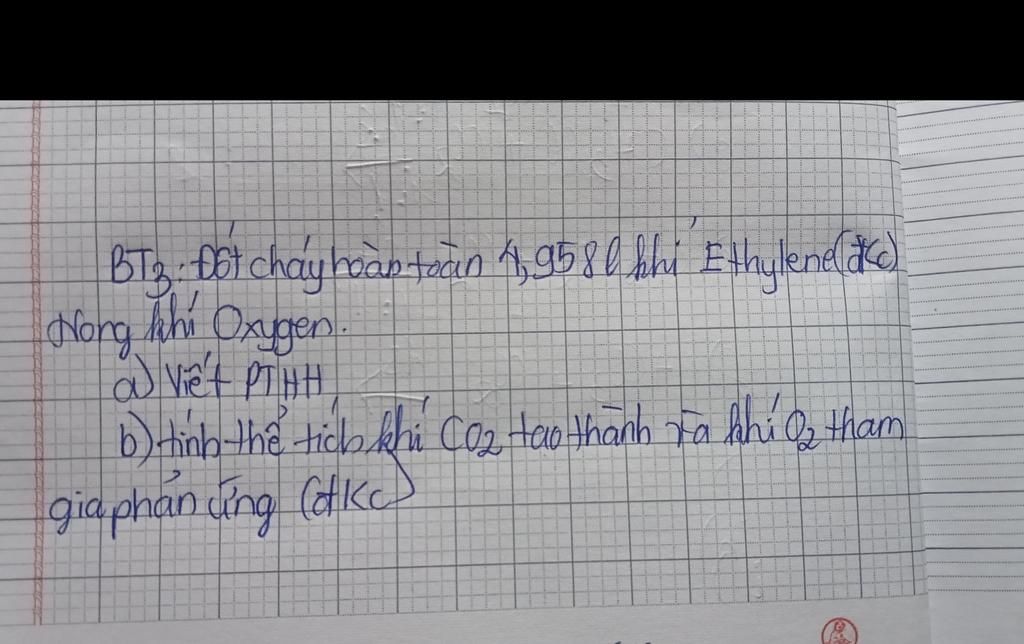 BT3: Đốt cháy hoàn toàn 4,958l khí Ethylene (đkc)
trong khí Oxygen.
a) Viết PTHH
b) tính thể tích khí CO2 tạo thành và khí O2 tham
gia phản ứng (đkc)